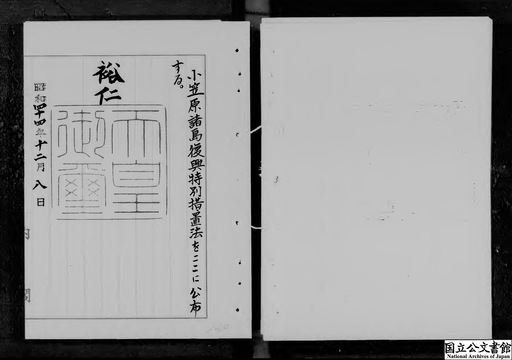 小笠原諸島復興特別措置法をここに公布
する。
裕仁
天皇
御璽
昭和四十四年十二月八日
内
閣
国立公文書館
National Archives of Japan